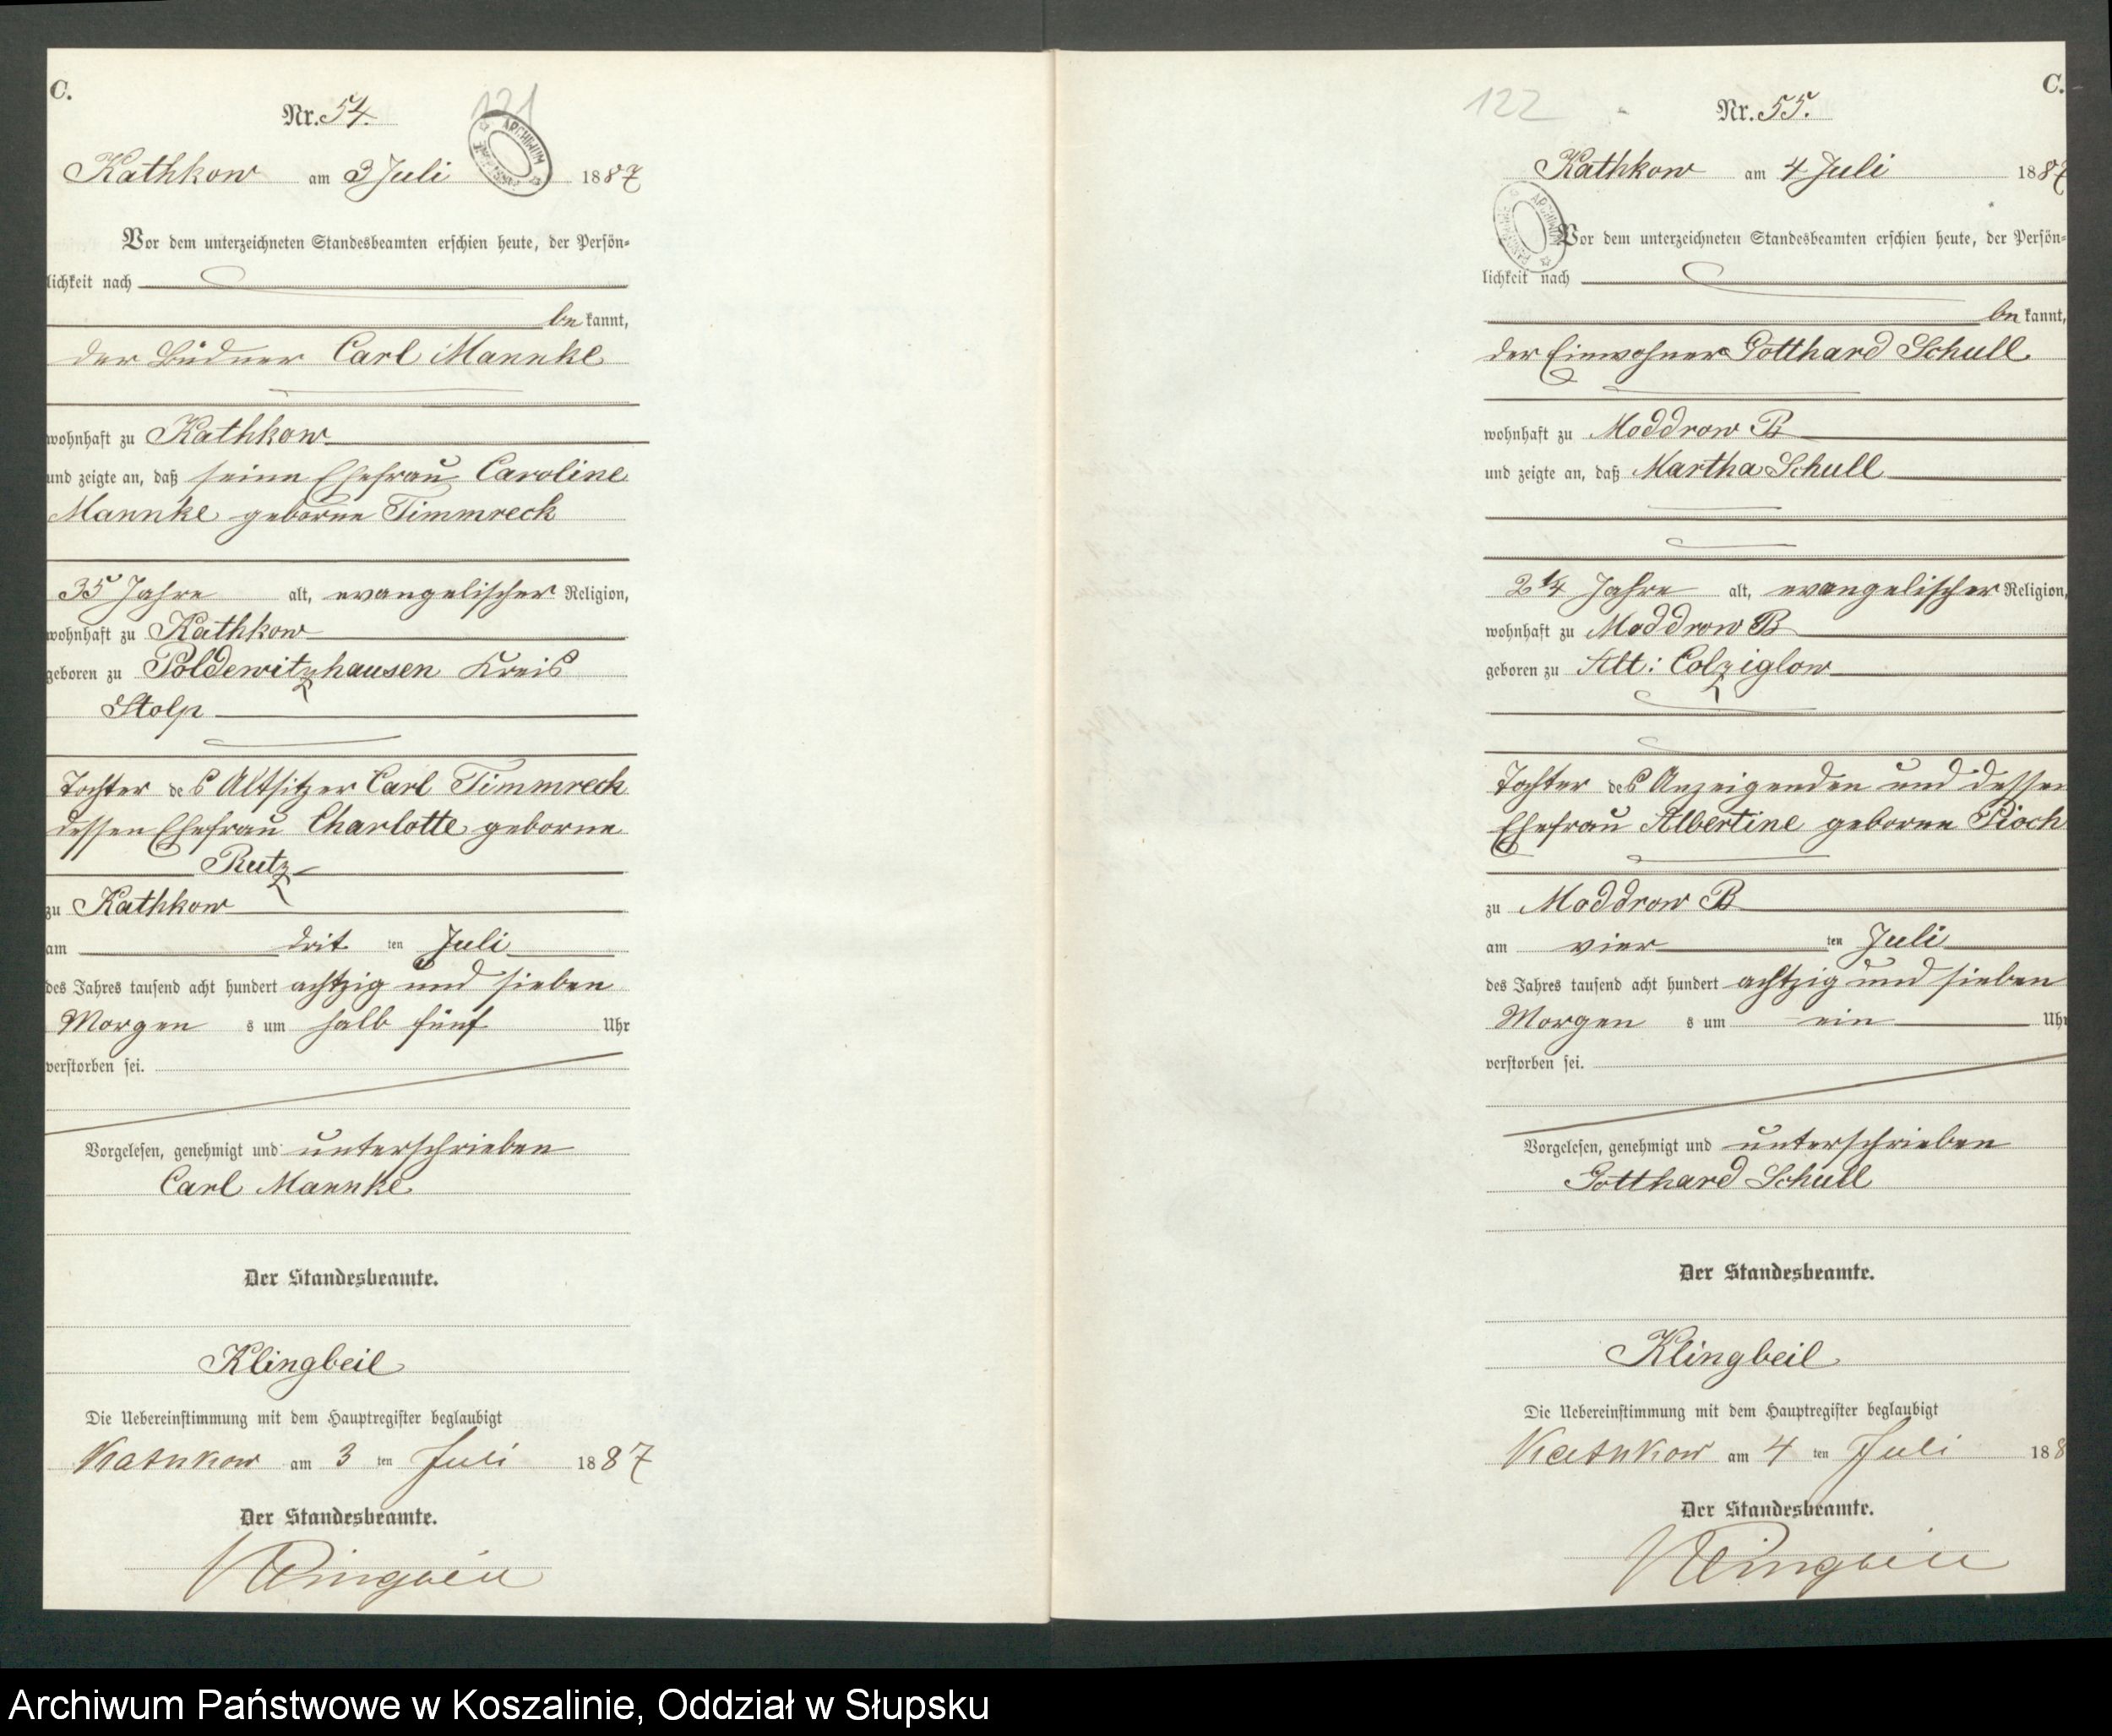 C.
Nr. 54.
121
ARCHIWUM
Kathkow am 3 Juli 1887
Vor dem unterzeichneten Standesbeamten erschien heute, der Persön-
lichkeit nach
be kannt,
der Büdner Carl Mannke
wohnhaft zu Kathkow
und zeigte an, daß seine Ehefrau Caroline
Mannke geborne Timmreck
35 Jahre alt, evangelischer Religion,
wohnhaft zu Kathkow
geboren zu Poldewitzhausen Kreis
Stolp
Tochter des Altsitzer Carl Timmreck
dessen Ehefrau Charlotte geborne
Rutz
zu Kathkow
am drit ten Juli
des Jahres tausend acht hundert achtzig und sieben
Morgen s um halb fünf Uhr
verstorben sei.
Vorgelesen, genehmigt und unterschrieben
Carl Mannke
Der Standesbeamte.
Klingbeil
Die Uebereinstimmung mit dem Hauptregister beglaubigt
Kathkow am 3 ten Juli 1887
Der Standesbeamte.
Klingbeil
C.
122
Nr. 55.
Kathkow am 4 Juli 188
ARCHIWUM
Vor dem unterzeichneten Standesbeamten erschien heute, der Persön-
lichkeit nach
be kannt,
der Einwohner Gotthard Schull
wohnhaft zu Moddrow B
und zeigte an, daß Martha Schull
2 1/4 Jahre alt, evangelischer Religion,
wohnhaft zu Moddrow B
geboren zu Alt: Colziglow
Tochter des Anzeigenden und dessen
Ehefrau Albertine geborne Pioch
zu Moddrow B
am vier ten Juli
des Jahres tausend acht hundert achtzig und sieben
Morgen s um ein Uhr
verstorben sei.
Vorgelesen, genehmigt und unterschrieben
Gotthard Schull
Der Standesbeamte.
Klingbeil
Die Uebereinstimmung mit dem Hauptregister beglaubigt
Kathkow am 4 ten Juli 188
Der Standesbeamte.
Klingbeil
Archiwum Państwowe w Koszalinie, Oddział w Słupsku